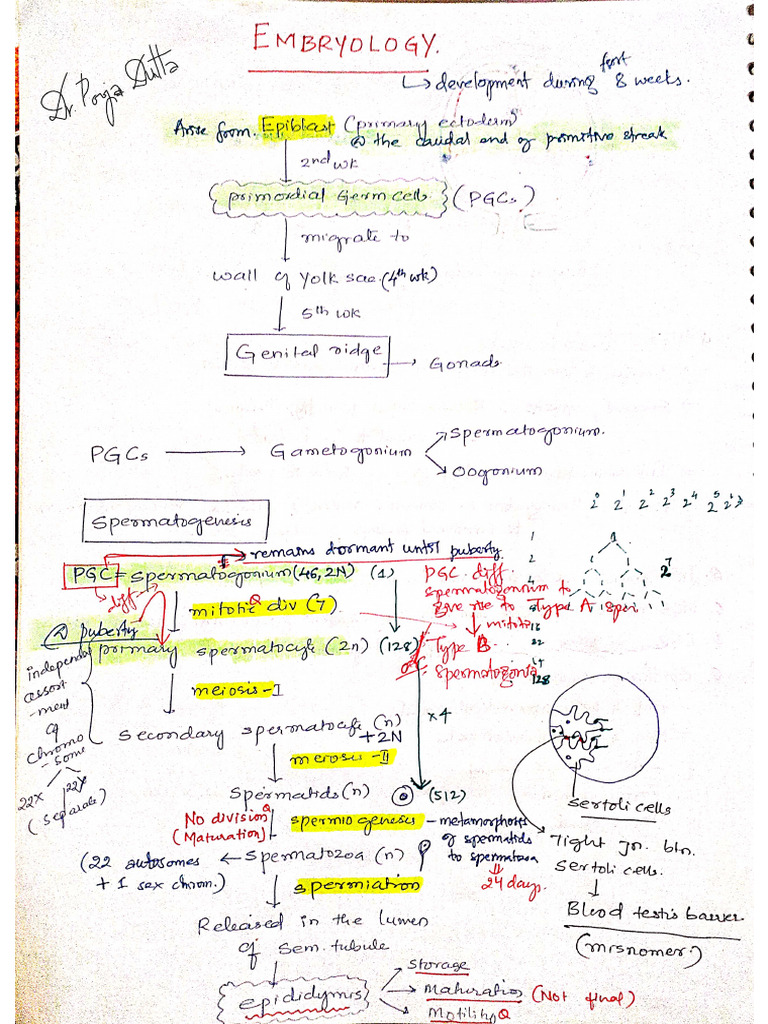 EMBRYOLOGY.
Dr. Pooja Dutta
↳ development during first 8 weeks.
Arise form. Epiblast (primary ectoderm)
@ the caudal end of primitive streak
2nd wk
primordial Germ cells (PGCs)
migrate to
wall of Yolk sac (4th wk)
5th wk
Genital ridge → Gonads
PGCs → Gametogonium
Spermatogonium.
Oogonium
Spermatogenesis
2⁰ 2¹ 2² 2³ 2⁴ 2⁵ 2⁶
remains dormant until puberty
PGC = spermatogonium (46, 2N) (1)
diff.
mitotic Q div (7)
@ puberty
primary spermatocyte (2n) (128)
PGC diff.
spermatogonium to
give rise to type A sper.
↓ mitotic
Type B
spermatogonia
1
2
4
8
16
32
64
128
2⁷
meiosis-I
independent
assort
-ment
of
chromo
-some
22X 22Y
(separate)
x4
Secondary spermatocyte (n)
+2N
meiosis-II
Spermatids (n) (512)
No division Q
(Maturation)
spermiogenesis - metamorphosis
of spermatids
to spermatozoa
24 days.
(22 autosomes ← Spermatozoa (n)
+ 1 sex chrom.)
spermiation
Released in the lumen
of Sem. tubule
epididymis
Storage
Maturation (Not final)
Motility Q
Sertoli cells
Tight Jn. btn.
Sertoli cells.
Blood testis barrier
(misnomer.)